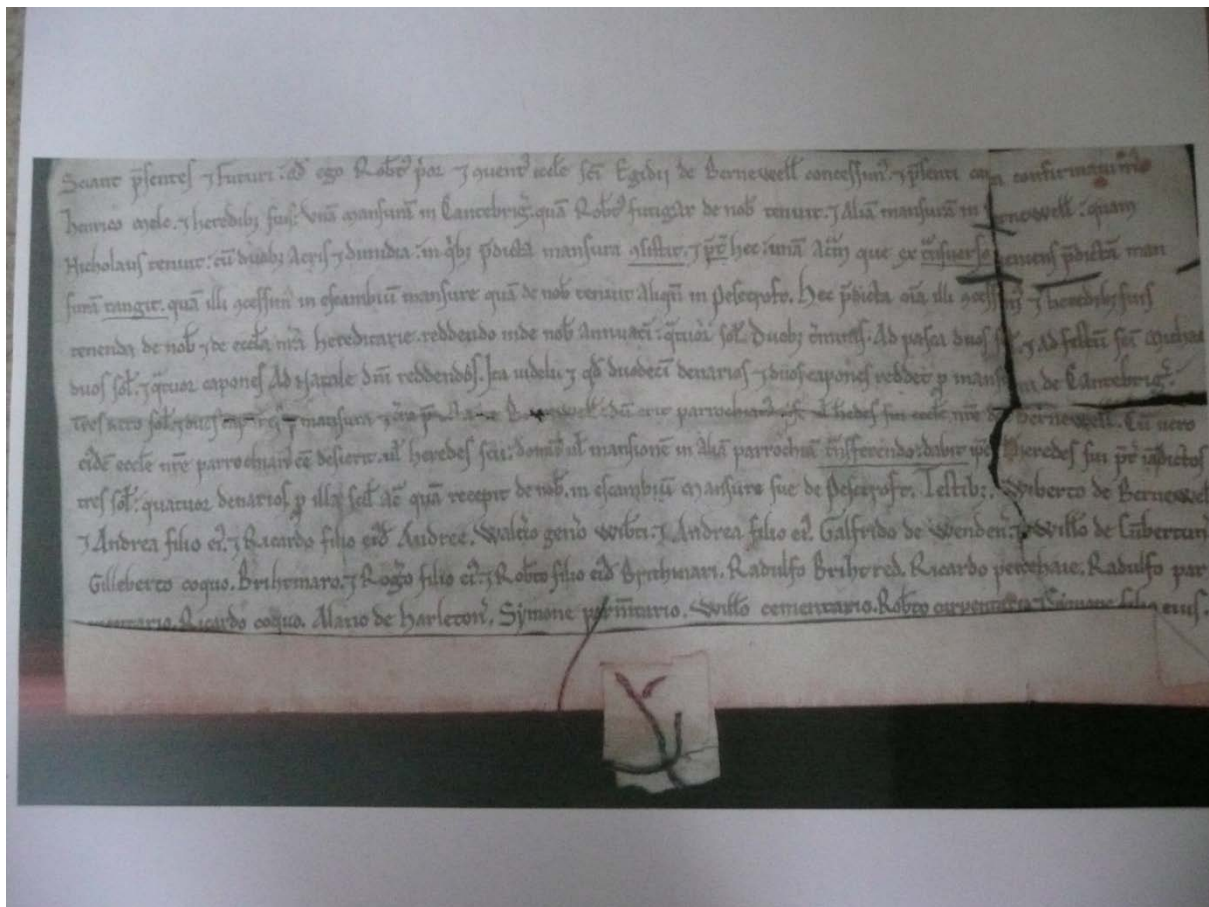 Sciant p̄sentes ⁊ futuri: qđ ego Robt᷒ p̓or ⁊ ꝯuent᷒ eccłe sc̄i Egidij de Bernewell concessim᷒ ⁊ p̄senti carta confirmauim᷒
Henrico mele. ⁊ heredibꝫ suis: Vnā mansurā in Cantebrig̓. quā Robt᷒ futigar de nob̄ tenuit. ⁊ Aliā mansurā in Bernewell: quam
Nicholaus tenuit: cū duabꝫ Acris ⁊ dimidia: in q̓bꝫ p̄dicta mansura ꝯsistit. ⁊ p̄t̓ hec: unā Acrā que ex tͣnsuerso ueniens p̄dictā man
surā tangit. quā illi ꝯcessim᷒ in escambiū mansure quā de nob̄ tenuit Aliqn̄ in Pesecrofte. Hec p̄dicta om̄ia illi ꝯcessim᷒ ⁊ heredibꝫ suis
tenenda de nob̄ ⁊ de eccła nr̄a hereditarie. reddendo inde nob̄ annuatī: qͣtuor soł. Duobꝫ t̓minis. Ad pasca duos soł. ⁊ Ad festū sc̄i Michaelis
duos soł. ⁊ qͣtuor capones Ad Natale dn̄i reddendos. Ita uidelic̓ ⁊ qđ duodeci denarios ⁊ duos capones reddet p̱ mansura de Cantebrig̓.
Tres uero soł. ⁊ duos mansura ⁊ Bernewell: dū erit parrochian᷒ ut heredes sui eccłe nr̄e de Bernewell. Cū uero
eidē eccłe nr̄e parrochian᷒ eē desierit. ut heredes sui: domū ut mansionē in Aliā parrochiā tͣnsferendo: dabit ip̄e ⁊ heredes sui p̄t̓ p̄dictos
tres soł: quatuor denarios. p̱ illa scil. Acͣ quā recepit de nob̄. in escambiū Mansure sue de Pesecrofte. Testibꝫ. Wiberto de Bernewell
⁊ Andrea filio ei᷒. ⁊ Ricardo filio ei᷒đ Andree. Walt̓o gen̓o Wib̓ti. ⁊ Andrea filio ei᷒. Galfrido de Wenden̓. ⁊ Willo de Cūbertun
Gilleberto coquo. Brihtmaro. ⁊ Rog̓o filio ei᷒. ⁊ Rob̄to filio ei᷒đ Brithmari. Radulfo Brihtred. Ricardo percehaie. Radulfo par
mentario. Ricardo coquo. Alano de Harleton̓. Symone parm̄tario. Willo cementario. Rob̄to ⁊ Simone filio eius.